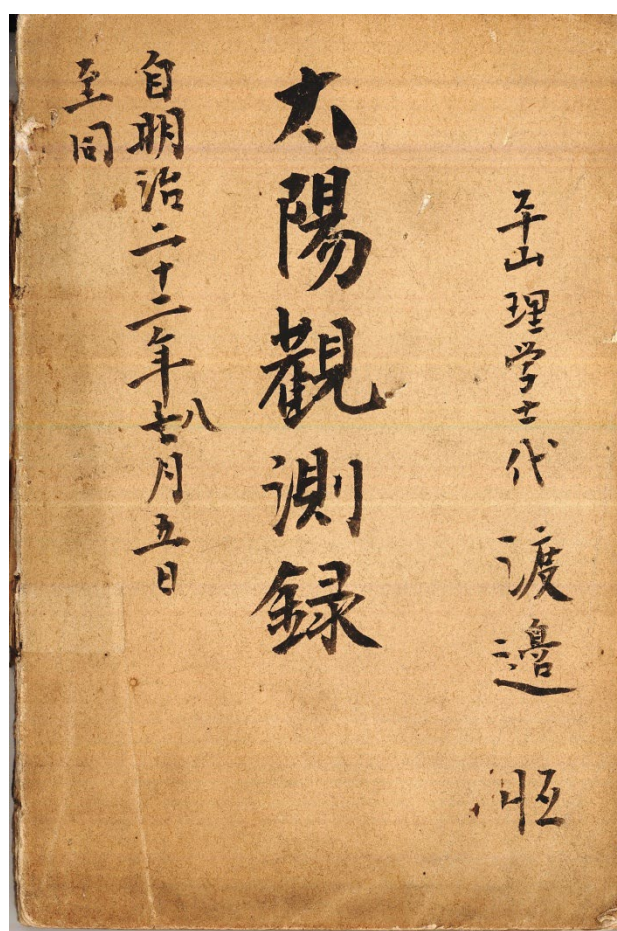 平山理学士代 渡邊 恒
太陽觀測録
自明治二十二年八月五日
至同